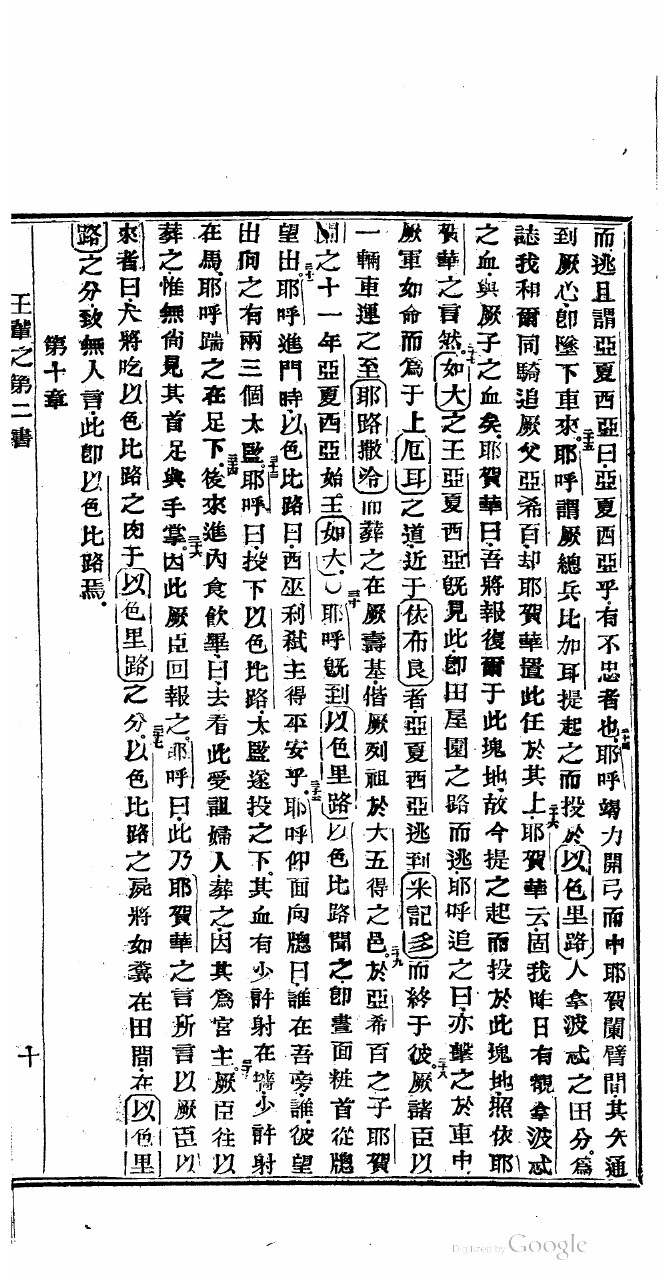 而逃且謂亞夏西亞曰亞夏西亞乎有不忠者也二十四耶呼竭力開弓而中耶賀蘭臂間其矢通
到厥心卽墜下車來二十五耶呼謂厥總兵比加耳提起之而投於以色里路人拿波忒之田分爲
誌我和爾同騎追厥父亞希百却耶賀華置此任於其上二十六耶賀華云固我昨日有觀拿波忒
之血與厥子之血矣耶賀華曰吾將報復爾于此塊地故今提之起而投於此塊地照依耶
賀華之言然二十七如大之王亞夏西亞旣見此卽由屋園之路而逃耶呼追之曰亦擊之於車中
厥軍如命而爲于上厄耳之道近于依布良者亞夏西亞逃到米記多而終于彼二十八厥諸臣以
一輛車運之至耶路撒冷而葬之在厥壽基偕厥列祖於大五得之邑二十九於亞希百之子耶賀
蘭之十一年亞夏西亞始王如大〇三十耶呼旣到以色里路以色比路聞之卽畫面粧首從牕
望出三十一耶呼進門時以色比路曰西巫利弒主得平安乎三十二耶呼仰面向牕曰誰在吾旁誰彼望
出向之有兩三個太監三十三耶呼曰投下以色比路太監遂投之下其血有少許射在墻少許射
在馬耶呼踹之在足下三十四後來進內食飲畢曰去看此受詛婦人葬之因其爲宮主三十五厥臣往以
葬之惟無尚見其首足與手掌三十六因此厥臣回報之耶呼曰此乃耶賀華之言所言以厥臣以
來者曰犬將吃以色比路之肉于以色里路之分三十七以色比路之屍將如糞在田間在以色里
路之分致無人言此卽以色比路焉
第十章
王輩之第二書
十
Digitized by Google